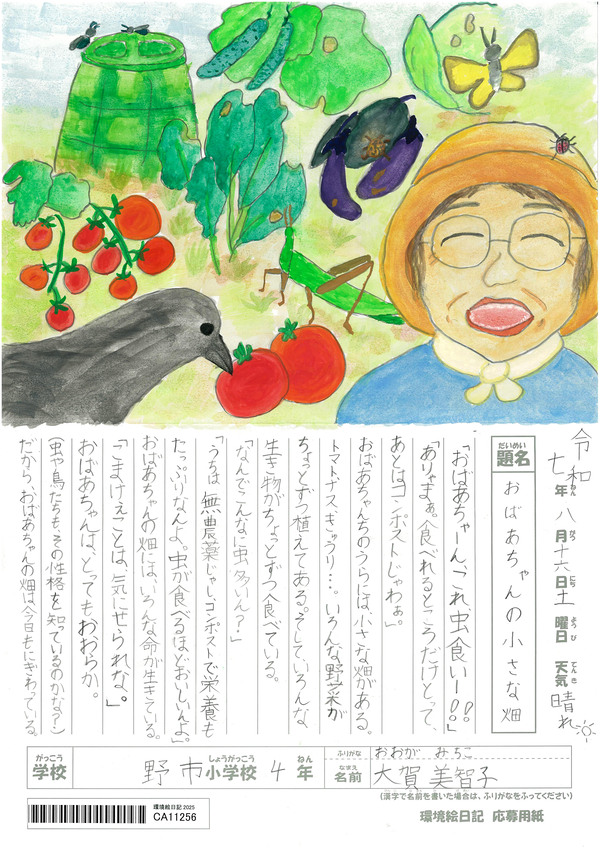 令和七年八月十六日土曜日 天気晴れ
ねん がつ にち ようび てんき
だいめい
題名
おばあちゃんの小さな畑
「おばあちゃーん、これ、虫食いー!!」
「ありゃまぁ。食べれるところだけとって、
あとはコンポストじゃわぁ。」
おばあちゃんちのうらには、小さな畑がある。
トマト、ナス、きゅうり…。いろんな野菜が
ちょっとずつ植えてある。そしていろんな
生き物がちょっとずつ食べている。
「なんでこんなに虫多いん?」
「うちは無農薬じゃし、コンポストで栄養も
たっぷりなんよ。虫が食べるほどおいしいんよ。」
おばあちゃんの畑には、いろんな命が生きている。
「こまけぇことは、気にせられな。」
おばあちゃんは、とってもおおらか。
(虫や鳥たちも、その性格を知っているのかな?)
だから、おばあちゃんの畑は今日もにぎわっている。
がっこう しょうがっこう ねん
学校 野市小学校 4年
ふりがな おおが みちこ
なまえ
名前 大賀 美智子
(漢字で名前を書いた場合は、ふりがなをふってください)
環境絵日記 応募用紙
環境絵日記 2025
CA11256